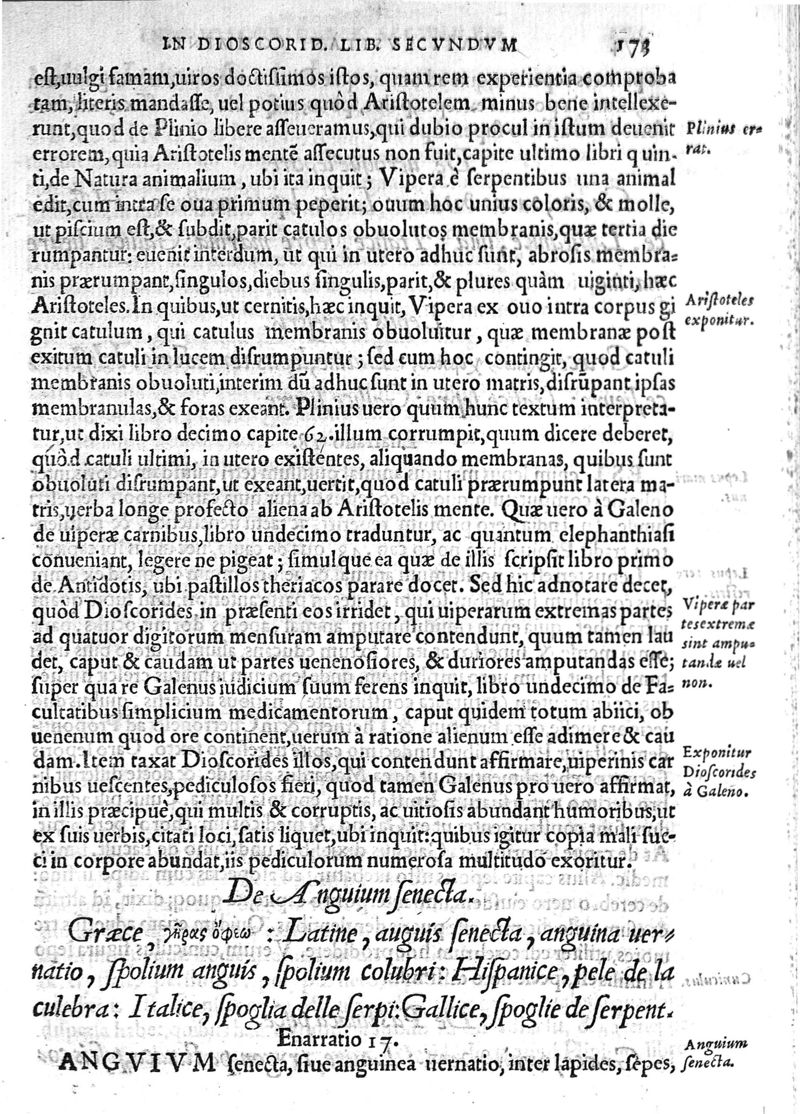 IN DIOSCORID. LIB. SECVNDVM 173
est,uulgi famam,uiros doctissimos istos, quam rem experientia comproba
tam, literis mandasse, uel potius quôd Aristotelem minus bene intellexe-
runt,quod de Plinio libere asseueramus,qui dubio procul in istum deuenit
Plinius er-
errorem, quia Aristotelis mentē assecutus non fuit,capite ultimo libri quin-
rat.
ti,de Natura animalium, ubi ita inquit; Vipera è serpentibus una animal
edit,cum intra se oua primum peperit; ouum hoc unius coloris, & molle,
ut piscium est,& subdit,parit catulos obuolutos membranis,quæ tertia die
rumpantur: euenit interdum, ut qui in utero adhuc sunt, abrosis membra-
nis prærumpant,singulos,diebus singulis,parit,& plures quàm uiginti,hæc
Aristoteles. In quibus,ut cernitis,hæc inquit, Vipera ex ouo intra corpus gi
Aristoteles
gnit catulum, qui catulus membranis obuoluitur, quæ membranæ post
exponitur.
exitum catuli in lucem disrumpuntur; sed cum hoc contingit, quod catuli
membranis obuoluti,interim dū adhuc sunt in utero matris,disrūpant ipsas
membranulas,& foras exeant. Plinius uero quum,hunc textum interpreta-
tur,ut dixi libro decimo capite 62.illum corrumpit,quum dicere deberet,
quôd catuli ultimi, in utero existentes, aliquando membranas, quibus sunt
obuoluti disrumpant,ut exeant,uertit,quod catuli prærumpunt latera ma-
tris,uerba longe profecto aliena ab Aristotelis mente. Quæ uero à Galeno
de uiperæ carnibus,libro undecimo traduntur, ac quantum elephanthiasi
conueniant, legere ne pigeat; simulque ea quæ de illis scripsit libro primo
de Antidotis, ubi pastillos theriacos parare docet. Sed hic adnotare decet,
quòd Dioscorides in præsenti eos irridet, qui uiperarum extremas partes
Viperæ par
ad quatuor digitorum mensuram amputare contendunt, quum tamen lau
tes extremæ
sint ampu-
det, caput & caudam ut partes uenenosiores, & duriores amputandas esse;
tandæ uel
super qua re Galenus iudicium suum ferens inquit, libro undecimo de Fa-
non.
cultatibus simplicium medicamentorum, caput quidem totum abiici, ob
uenenum quod ore continent,uerum à ratione alienum esse adimere & cau
dam. Item taxat Dioscorides illos,qui contendunt affirmare,uiperinis car
Exponitur
nibus uescentes,pediculosos fieri, quod tamen Galenus pro uero affirmat,
Dioscorides
à Galeno.
in illis præcipuè,qui multis & corruptis, ac uitiosis abundant humoribus,ut
ex suis uerbis, citati loci, satis liquet,ubi inquit:quibus igitur copia mali suc-
ci in corpore abundat,iis pediculorum numerosa multitudo exoritur.
De Anguium senecta.
Græce, γῆρας ὄφεω : Latine, auguis senecta, anguina uer-
natio, spolium anguis, spolium colubri: Hispanice, pele de la
culebra: Italice, spoglia delle serpi: Gallice, spoglie de serpent.
Enarratio 17.
ANGVIVM senecta, siue anguinea uernatio, inter lapides, sepes,
Anguium
senecta.